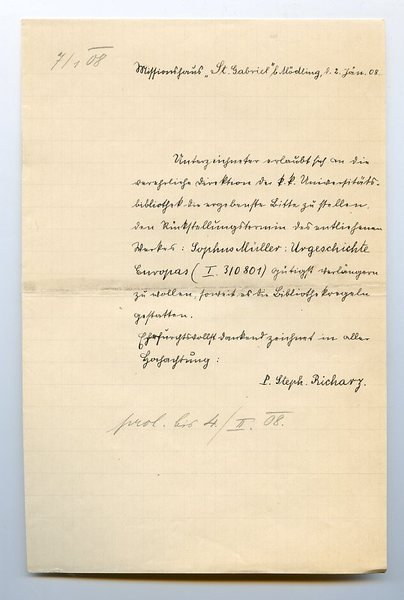 7/1 08
Missionshaus „St. Gabriel" b. Mödling, d. 2. Jän. 08.
Unterzeichneter erlaubt sich an die
verehrliche Direktion der k. k. Universitäts-
bibliothek die ergebenste Bitte zu stellen,
den Rückstellungstermin des entliehenen
Werkes: Sophus Müller: Urgeschichte
Europas (I 310801) gütigst verlängern
zu wollen, soweit es die Bibliotheksregeln
gestatten.
Ehrfurchtsvollst dankend zeichnet in aller
Hochachtung:
P. Steph. Richarz.
prol. bis 4./II. 08.